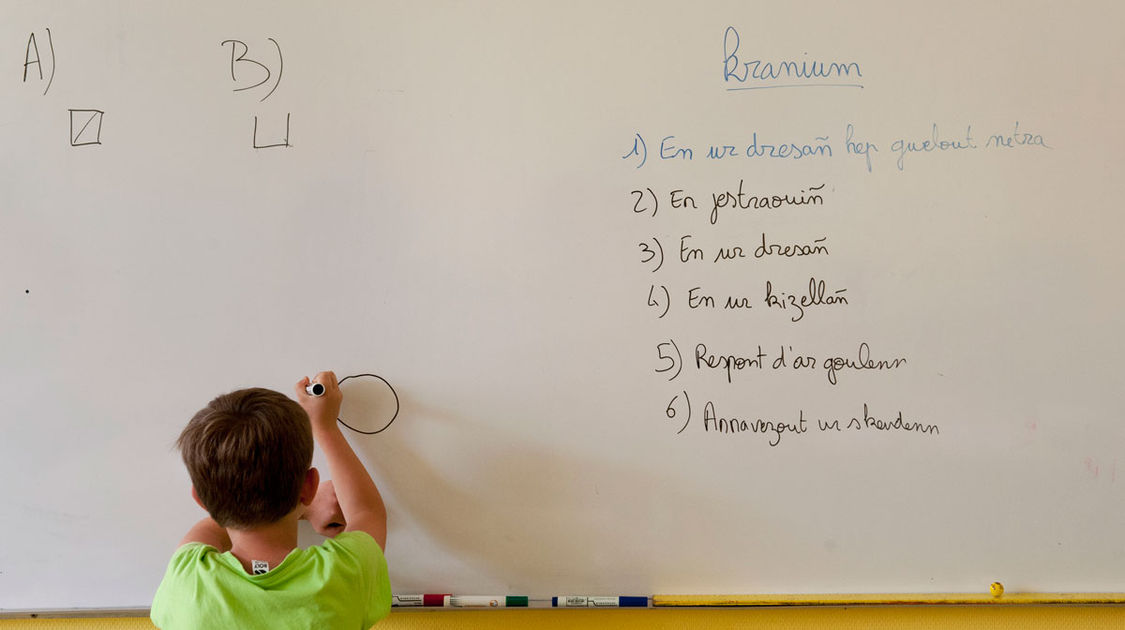 A)
B)
kranium
1) En ur dresañ hep guelout netra
2) En jestraouiñ
3) En ur dresañ
4) En ur kizellañ
5) Respont d'ar goulenn
6) Annavezout ur skeudenn
ROLY